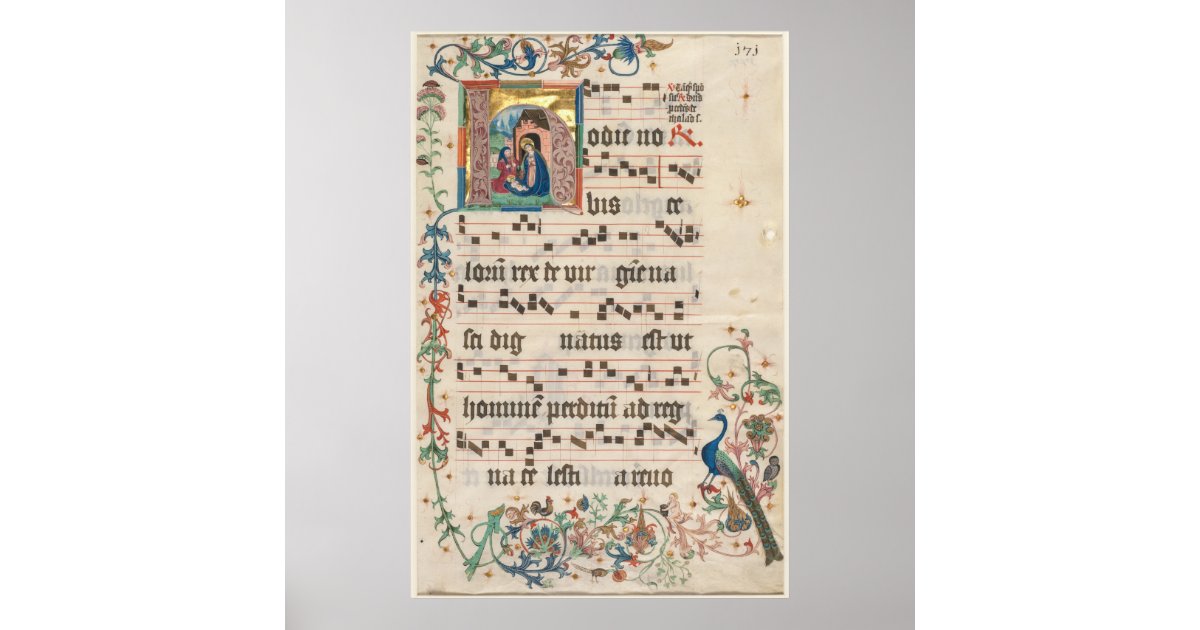 j7j
H odie no R.
bis ce
lorũ rex de vir gĩe na
sci dig natus est ut
hominẽ perditũ ad reg
na ce lesti a revo